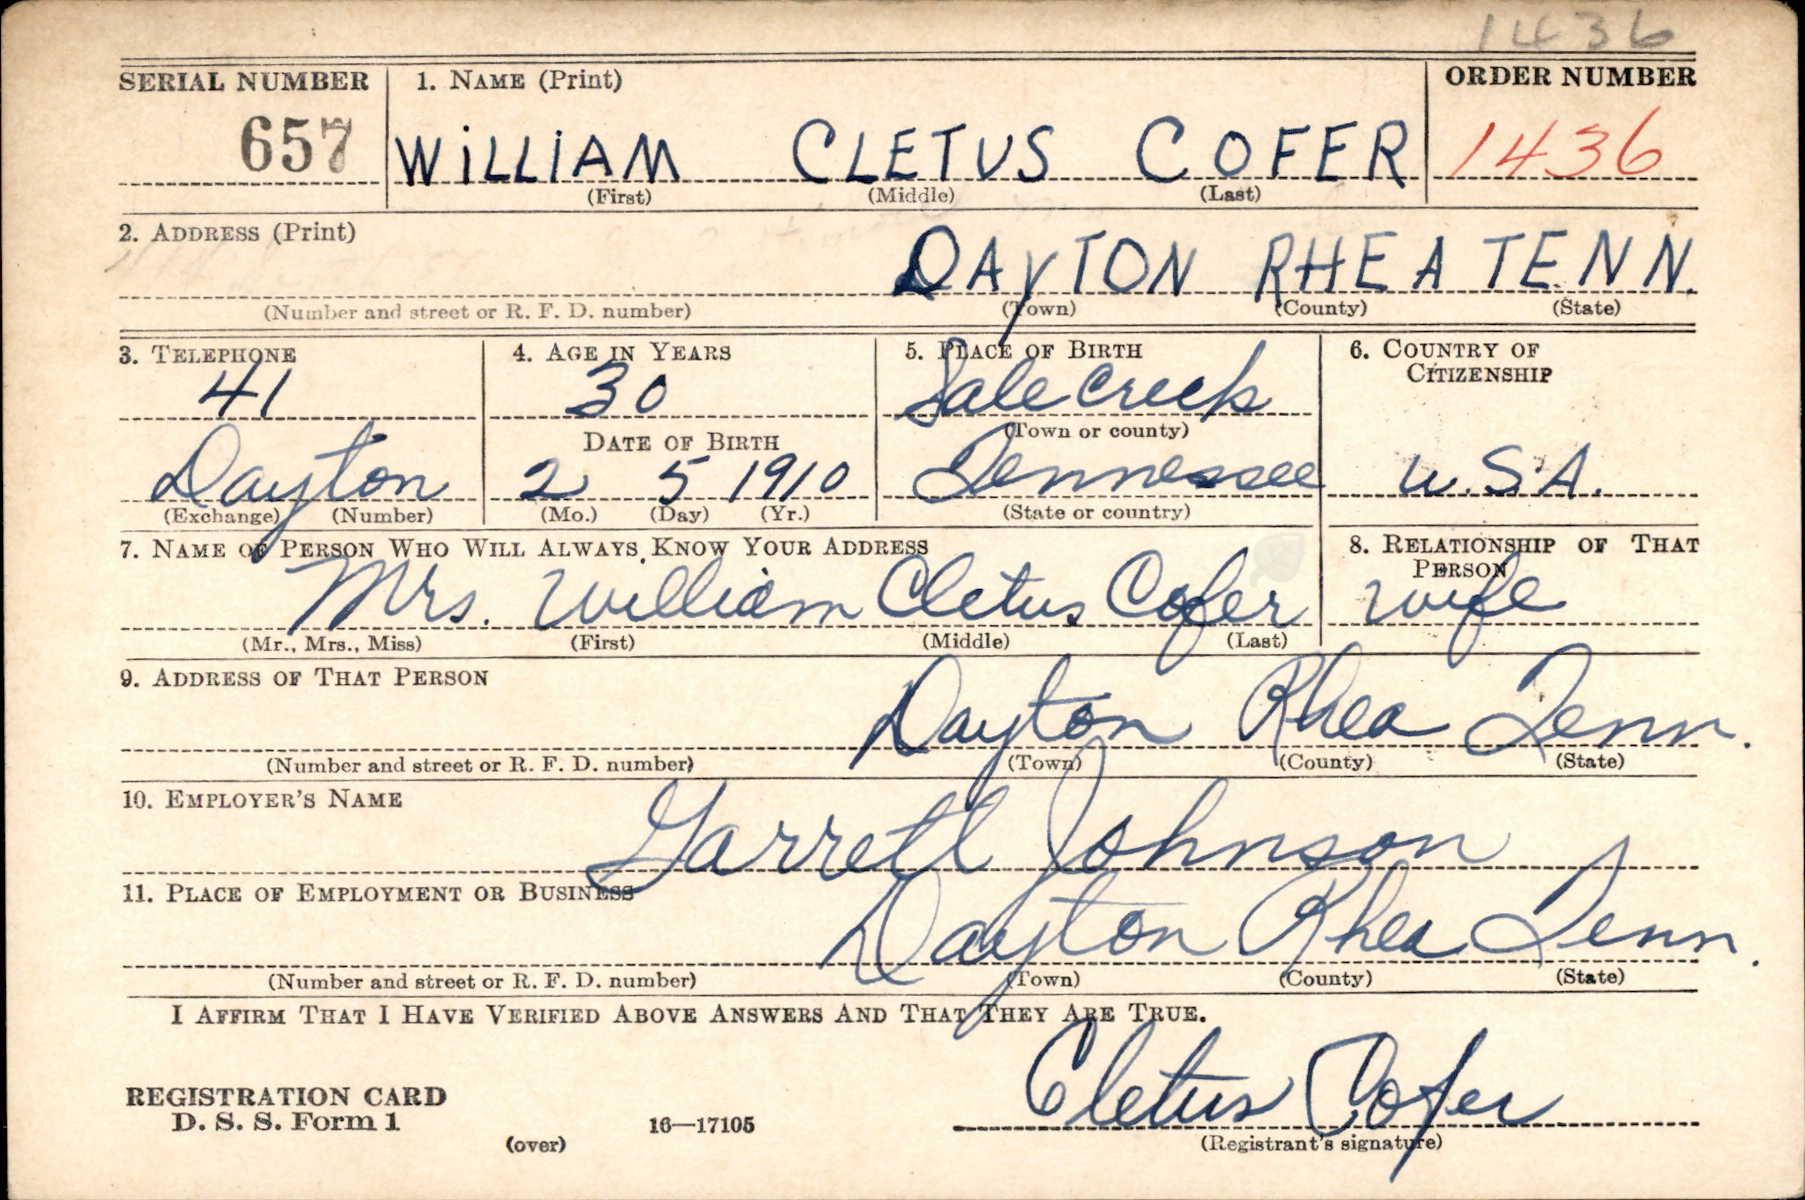 1436
SERIAL NUMBER 1. NAME (Print) ORDER NUMBER
657 WiLLiAM CLETUS COFER 1436
(First) (Middle) (Last)
2. ADDRESS (Print)
DAYTON RHEA TENN.
(Number and street or R. F. D. number) (Town) (County) (State)
3. TELEPHONE 4. AGE IN YEARS 5. PLACE OF BIRTH 6. COUNTRY OF
CITIZENSHIP
41 30 Sale Creek
DATE OF BIRTH (Town or county)
Dayton 2 5 1910 Tennessee U.S.A.
(Exchange) (Number) (Mo.) (Day) (Yr.) (State or country)
7. NAME OF PERSON WHO WILL ALWAYS KNOW YOUR ADDRESS 8. RELATIONSHIP OF THAT
PERSON
Mrs. William Cletus Cofer wife
(Mr., Mrs., Miss) (First) (Middle) (Last)
9. ADDRESS OF THAT PERSON
Dayton Rhea Tenn.
(Number and street or R. F. D. number) (Town) (County) (State)
10. EMPLOYER'S NAME
Garrett Johnson
11. PLACE OF EMPLOYMENT OR BUSINESS
Dayton Rhea Tenn.
(Number and street or R. F. D. number) (Town) (County) (State)
I AFFIRM THAT I HAVE VERIFIED ABOVE ANSWERS AND THAT THEY ARE TRUE.
Cletus Cofer
REGISTRATION CARD
D. S. S. Form 1 16—17105
(over) (Registrant's signature)